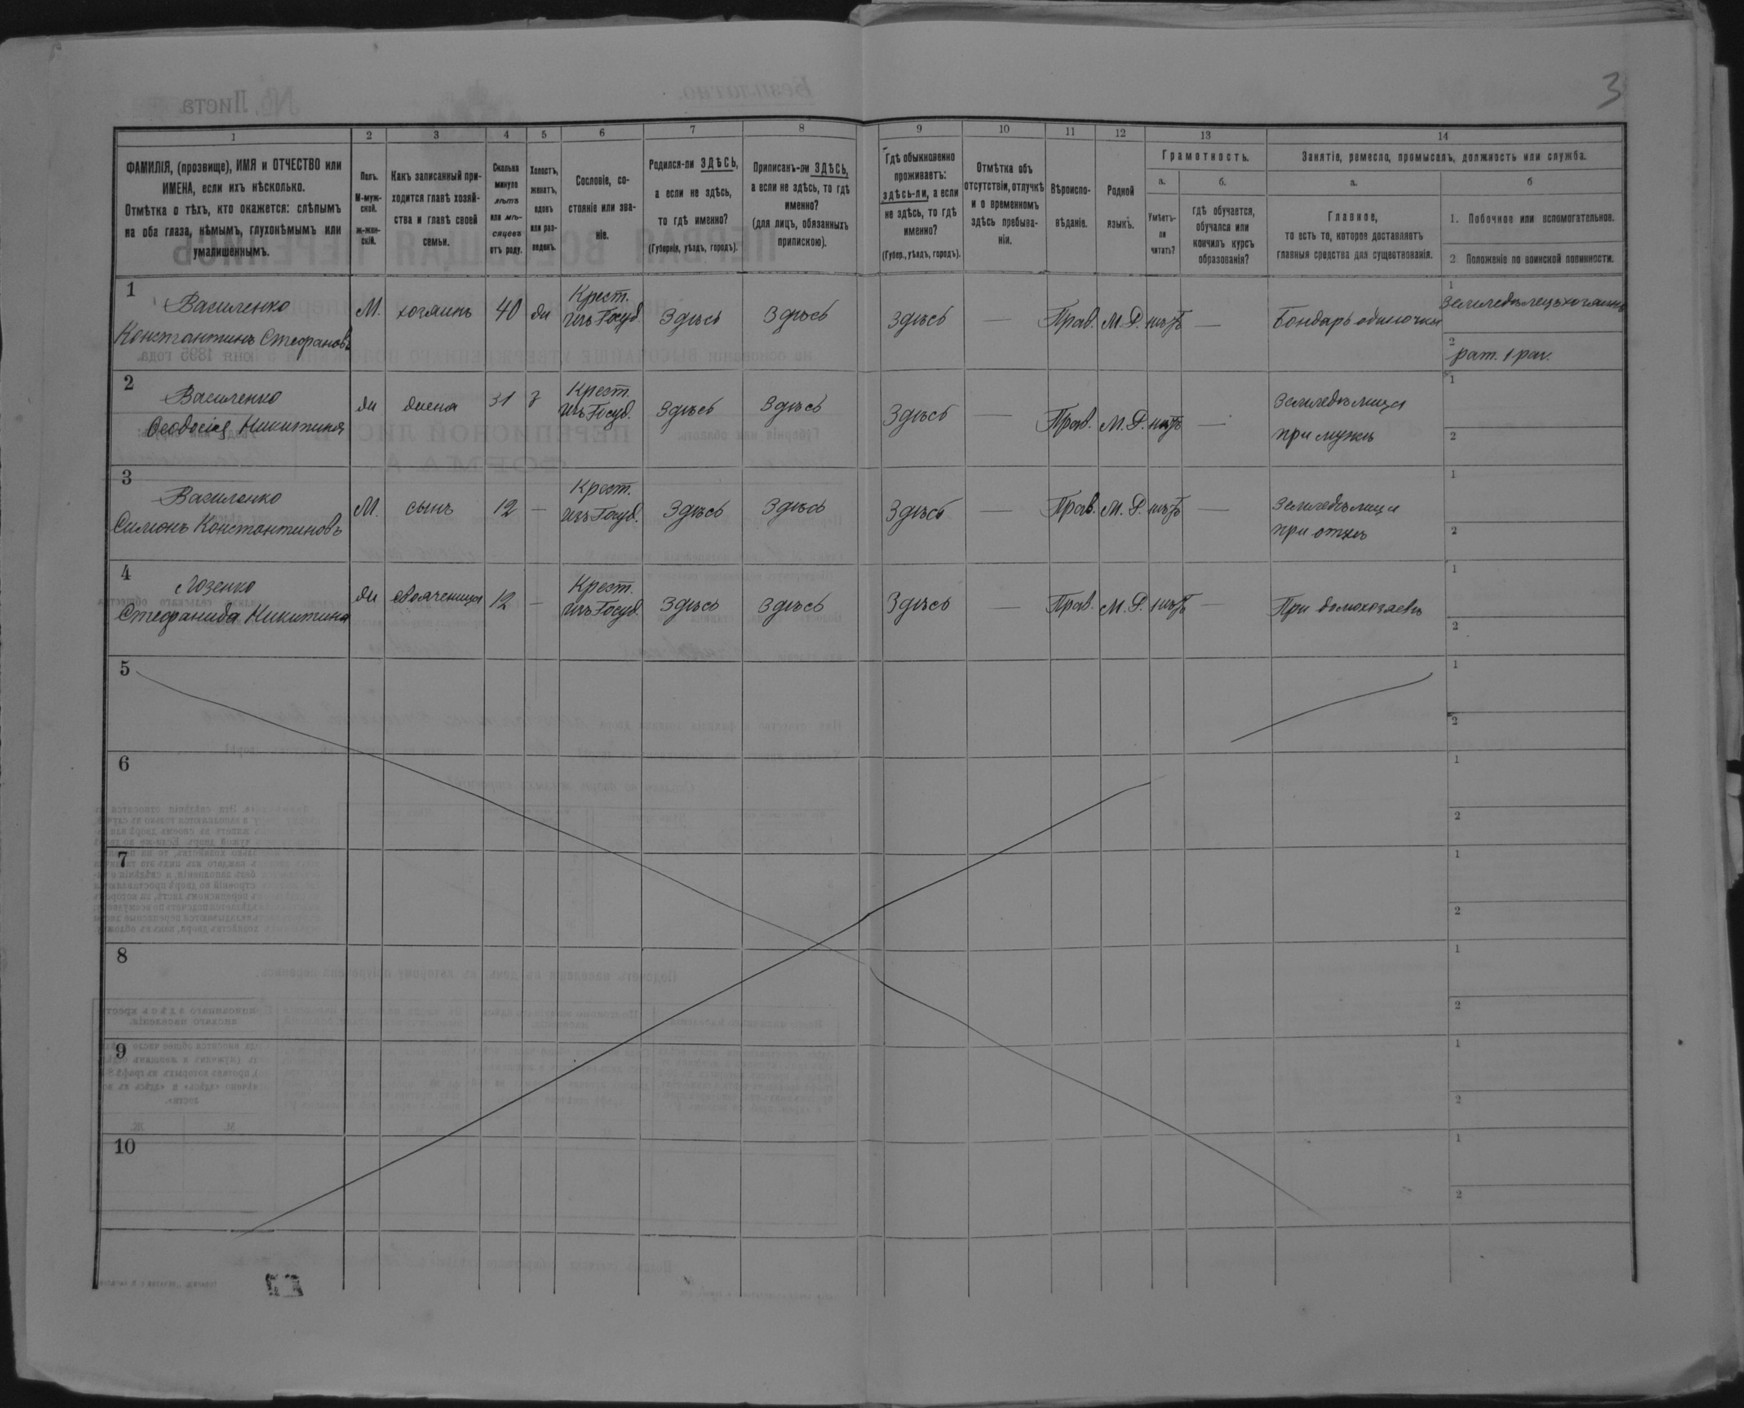 3
1 2 3 4 5 6 7 8 9 10 11 12 13 14
ФАМИЛІЯ, (прозвище), ИМЯ и ОТЧЕСТВО или
ИМЕНА, если ихъ нѣсколько.
Отмѣтка о тѣхъ, кто окажется: слѣпымъ
на оба глаза, нѣмымъ, глухонѣмымъ или
умалишеннымъ.
Полъ.
М-муж-
ской.
ж-жен-
скій.
Какъ записанный при-
ходится главѣ хозяй-
ства и главѣ своей
семьи.
Сколько
минуло
лѣтъ
или мѣ-
сяцевъ
отъ роду.
Холостъ,
женатъ,
вдовъ
или раз-
веденъ.
Сословіе, со-
стояніе или зва-
ніе.
Родился-ли ЗДѢСЬ,
а если не здѣсь,
то гдѣ именно?
(Губернія, уѣздъ, городъ).
Приписанъ-ли ЗДѢСЬ,
а если не здѣсь, то гдѣ
именно?
(для лицъ, обязанныхъ
припискою).
Гдѣ обыкновенно
проживаетъ:
здѣсь-ли, а если
не здѣсь, то гдѣ
именно?
(Губер., уѣздъ, городъ).
Отмѣтка объ
отсутствіи, отлучкѣ
и о временномъ
здѣсь пребыва-
ніи.
Вѣроиспо-
вѣданіе.
Родной
языкъ.
Грамотность.
а.
Умѣетъ-
ли
читать?
б.
гдѣ обучается,
обучался или
кончилъ курсъ
образованія?
Занятіе, ремесло, промыселъ, должность или служба.
а.
Главное,
то есть то, которое доставляетъ
главныя средства для существованія.
б
1. Побочное или вспомогательное.
2 Положеніе по воинской повинности.
1
Василенко
Константинъ Стефановъ
М. хозяинъ 40 ж
Крест.
изъ Госуд.
Здѣсь Здѣсь Здѣсь — Прав. М. Р. нѣтъ —
Бондарь
1
земледѣлецъ хозяинъ
2
рат. 1 раз.
2
Василенко
Ѳеодосія Никитина
ж жена 31 з
Крест.
изъ Госуд.
Здѣсь Здѣсь Здѣсь — Прав. М. Р. нѣтъ —
земледѣлица
при мужѣ
1
2
3
Василенко
Симонъ Константиновъ
М. сынъ 12 —
Крест.
изъ Госуд.
Здѣсь Здѣсь Здѣсь — Прав. М. Р. нѣтъ —
земледѣлица
при отцѣ
1
2
4
Лозенко
Стефанида Никитина
ж своячница 12 —
Крест.
изъ Госуд.
Здѣсь Здѣсь Здѣсь — Прав. М. Р. нѣтъ —
При
1
2
5
1
2
6
1
2
7
1
2
8
1
2
9
1
2
10
1
2